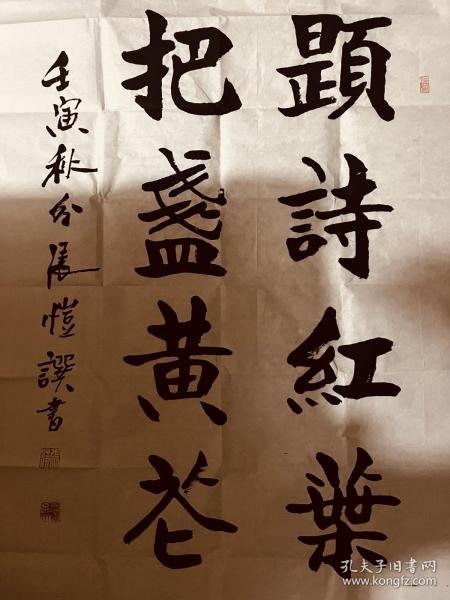 題詩紅葉
把盞黄花
壬寅秋分張愷譔書
孔夫子旧书网
www.kongfz.com